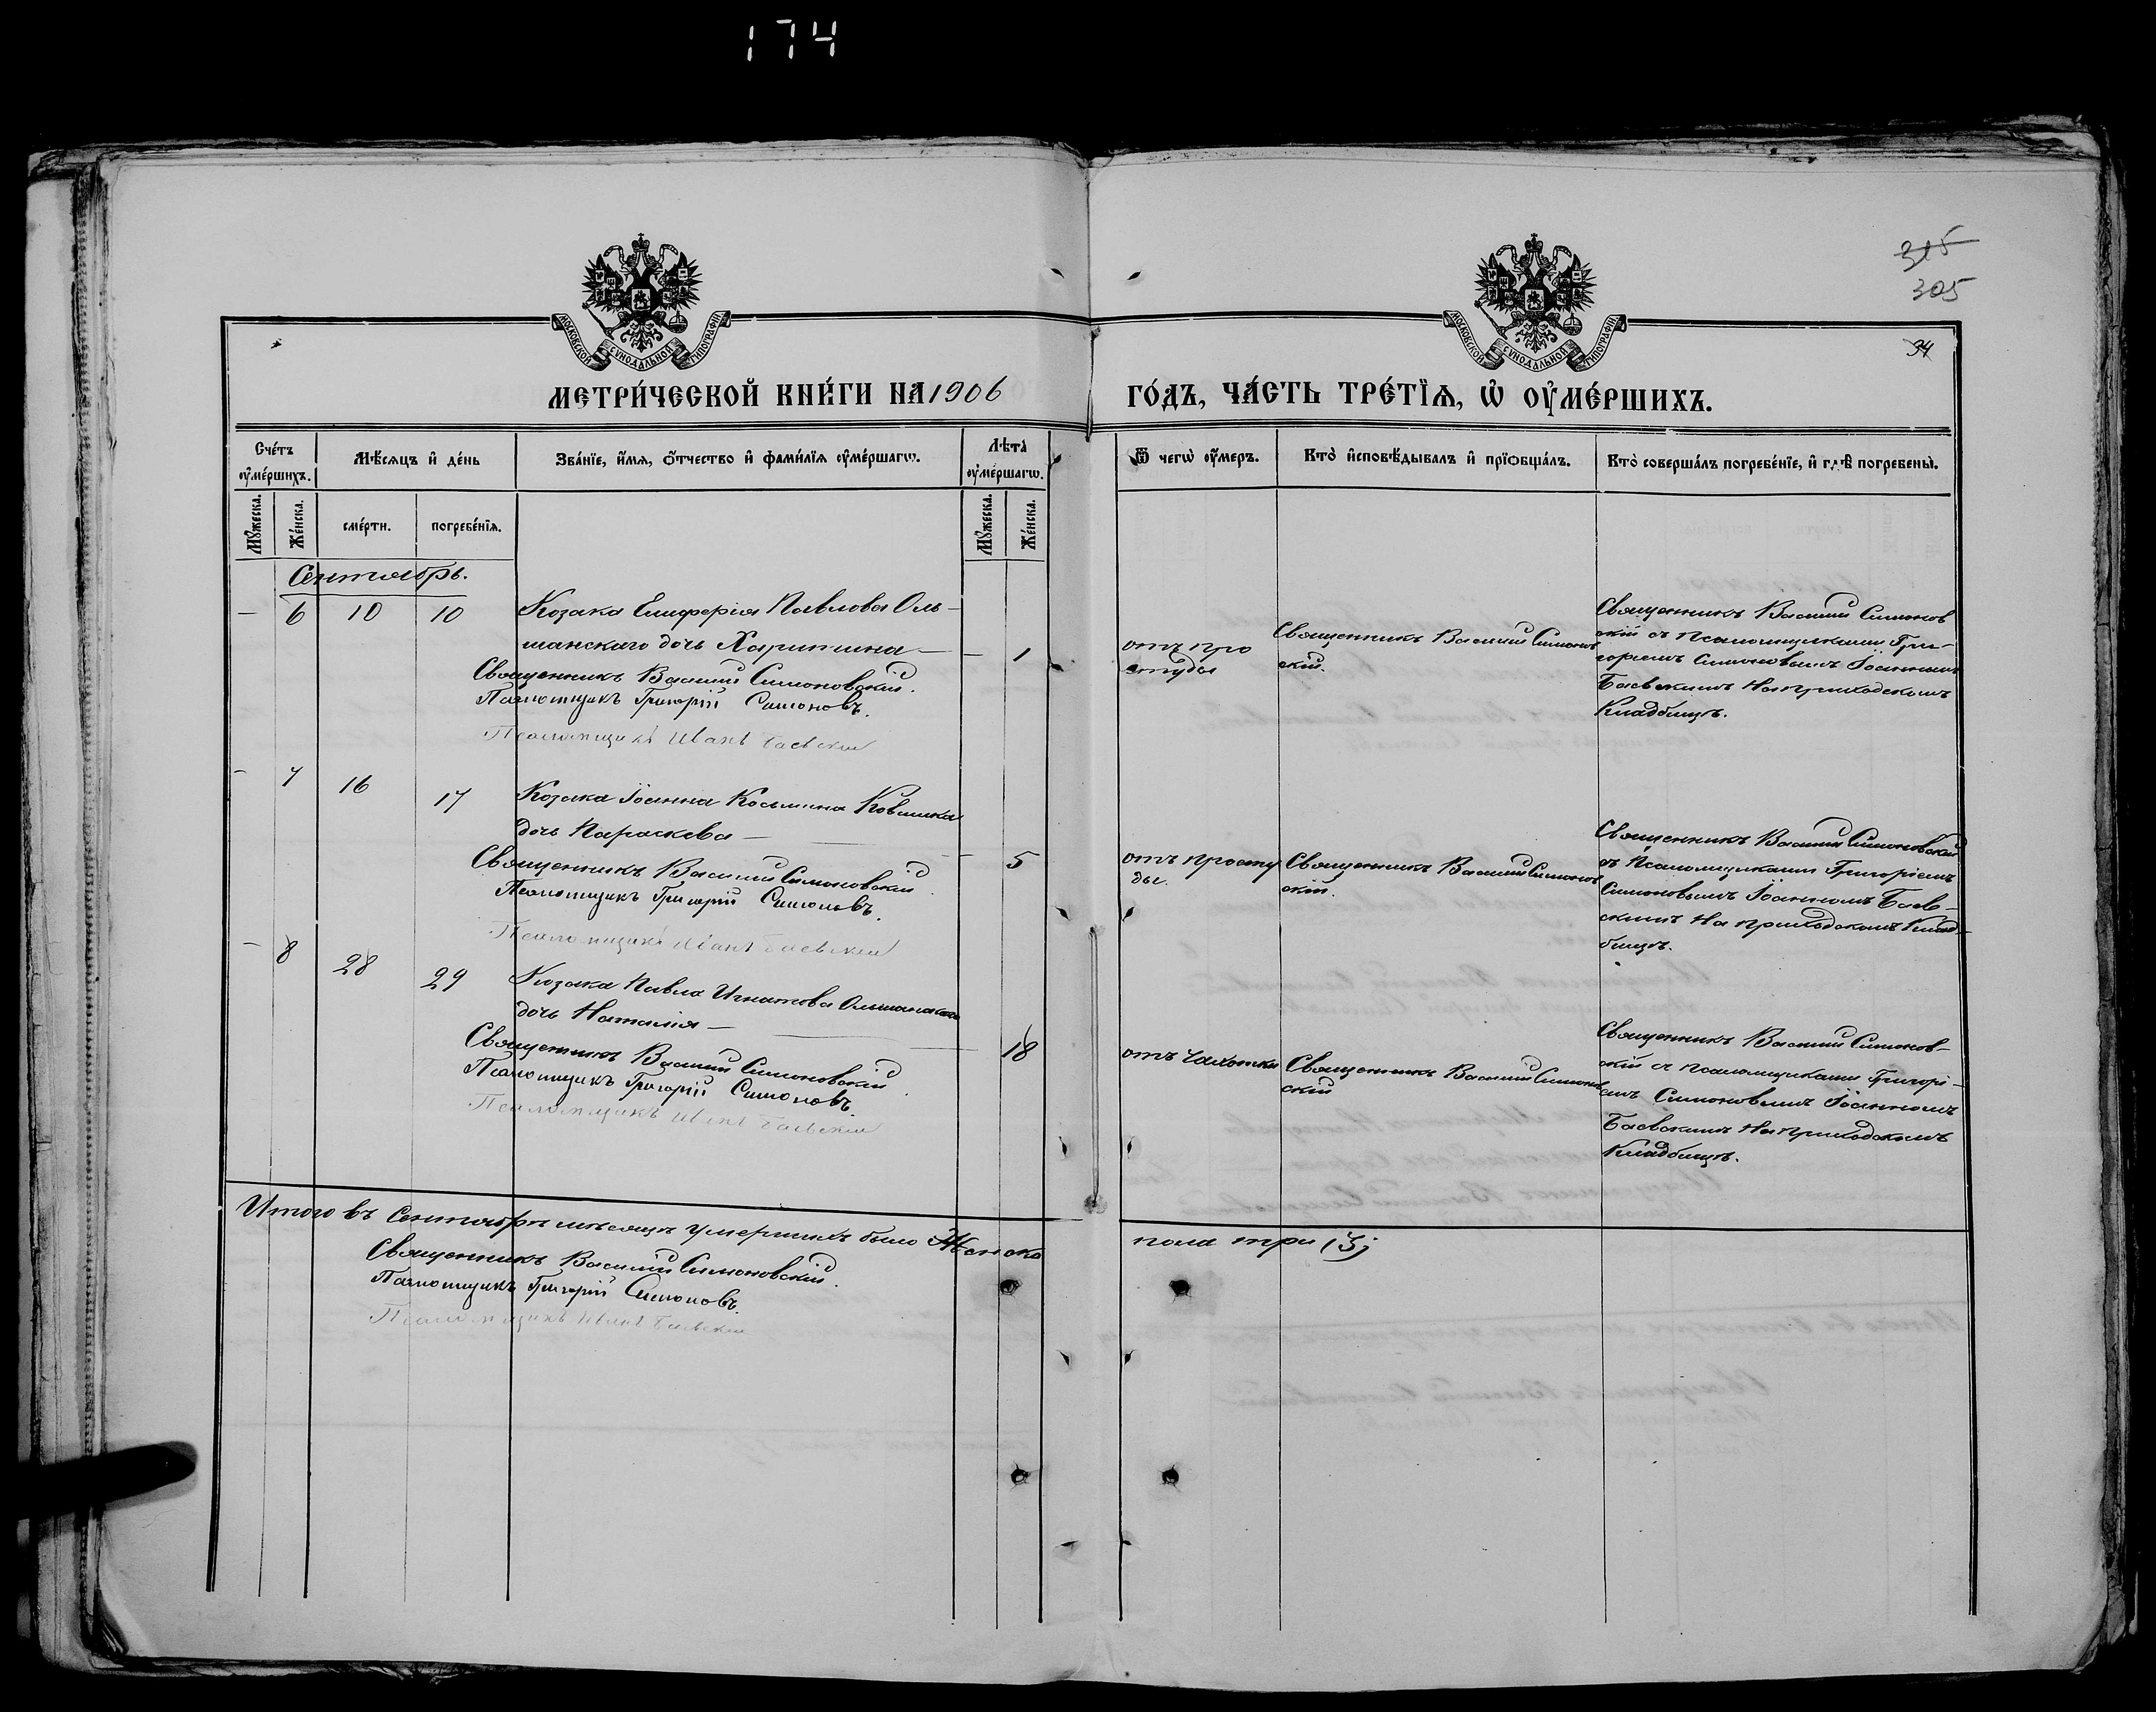 174
315
305
34
МОСКОВСКОЙ СѴНОДАЛЬНОЙ ТИПОГРАФІИ
МОСКОВСКОЙ СѴНОДАЛЬНОЙ ТИПОГРАФІИ
МЕТРИ́ЧЕСКОЙ КНИ́ГИ НА 1906 ГО́ДЪ, ЧА́СТЬ ТРЕ́ТЇѦ, Ѡ҆ ОУ҆МЕ́РШИХЪ.
Сче́тъ оу҆ме́ршихъ.
Мѣ́сѧцъ и҆ де́нь
Зва́нїе, и҆́мѧ, ѻ҆́тчество и҆ фами́лїѧ оу҆ме́ршагѡ.
Лѣ́та оу҆ме́ршагѡ.
Ѿ чегѡ̀ оу҆́меръ.
Кто̀ и҆сповѣ́дывалъ и҆ прїѻбща́лъ.
Кто̀ соверша́лъ погребе́нїе, и҆ гдѣ̀ погребены̀.
Мꙋ́жеска.
Же́нска.
сме́рти.
погребе́нїѧ.
Мꙋ́жеска.
Же́нска.
Сентябрь.
— 6 10 10 Козака Елифферія Павлова Оль-
шанскаго дочь Харитина — — 1
Священникъ Василій Симоновскій.
Псаломщикъ Григорій Симоновъ.
Псаломщикъ Иванъ Баевскій
отъ про
студы
Священникъ Василій Симонов
скій.
Священникъ Василій Симонов
скій съ псаломщиками Гри-
горіемъ Симоновымъ Іоанномъ
Баевскимъ на приходскомъ
Кладбищѣ.
— 7 16 17 Козака Іоанна Косьмина Ковшика
дочь Параскева — — 5
Священникъ Василій Симоновскій.
Псаломщикъ Григорій Симоновъ.
Псаломщикъ Иванъ Баевскій
отъ просту
ды.
Священникъ Василій Симонов
скій.
Священникъ Василій Симоновскій
съ Псаломщиками Григоріемъ
Симоновымъ Іоанномъ Баев-
скимъ на приходскомъ Клад-
бищѣ.
— 8 28 29 Козака Павла Игнатова Ольшанскаго
дочь Наталія — — 18
Священникъ Василій Симоновскій.
Псаломщикъ Григорій Симоновъ.
Псаломщикъ Иванъ Баевскій
отъ чахотки
Священникъ Василій Симонов
скій
Священникъ Василій Симонов-
скій съ псаломщиками Григорі-
емъ Симоновымъ Іоанномъ
Баевскимъ на приходскомъ
Кладбищѣ.
Итого въ Сентябрѣ мѣсяцѣ умершихъ было Женска пола три (3)
Священникъ Василій Симоновскій.
Псаломщикъ Григорій Симоновъ.
Псаломщикъ Иванъ Баевскій